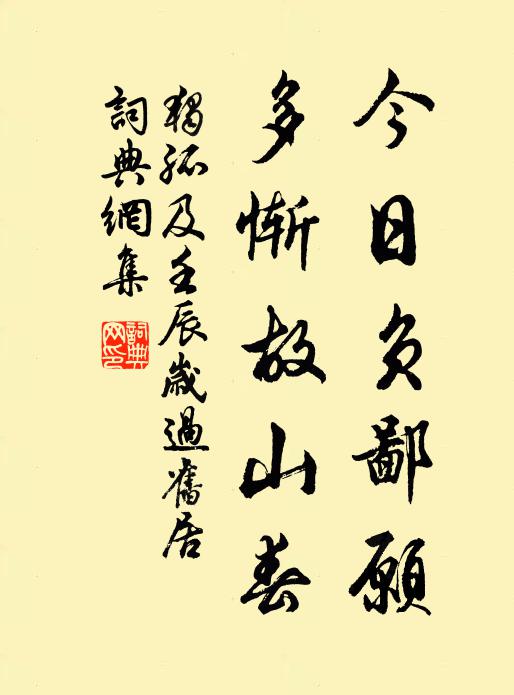 今日負鄙願
多慚故山春
獨孤及壬辰歲過舊居
詞典網集
詞典網印